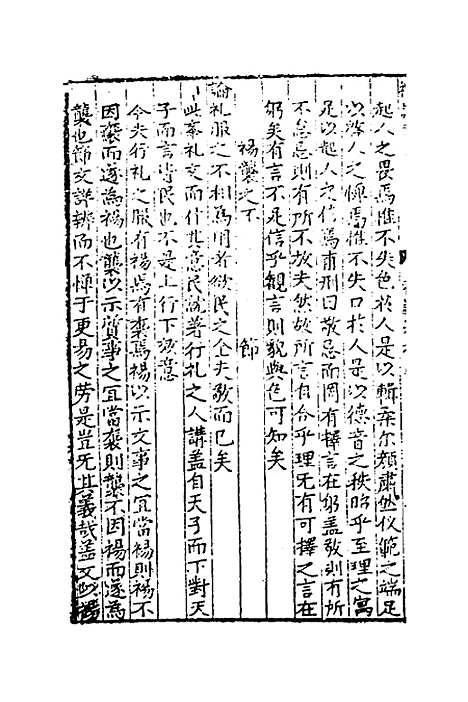 起人之畏焉惟不失色於人是以輯柔尔顔肅然仪範之端足
以為人之憚焉惟不失口於人是以德音之秩昭乎至理之寓
足以起人之信焉甫刑曰敬忌而罔有擇言在躬盖敬則有所
不怠忌則有所不放夫然故所言自合乎理无有可擇之言在
躬矣有言不足信乎観言則貌與色可知矣
裼襲之不 節
論礼服之不相為用者欲民之全夫敬而已矣
此章礼文而什其意民就著行礼之人講盖自天子而下對天
子而言皆民也不是上行下效意
今夫行礼之服有裼焉有襲焉裼以示文事之宜當裼則裼不
因襲而遂為裼也襲以示質事之宜當襲則襲不因裼而遂為
襲也節文詳辨而不憚于更易之劳是豈无其義哉盖文以裼